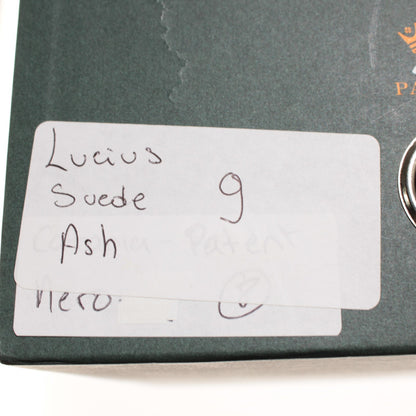 PA
Lucius
Suede 9
Ash
Patent
Nero.